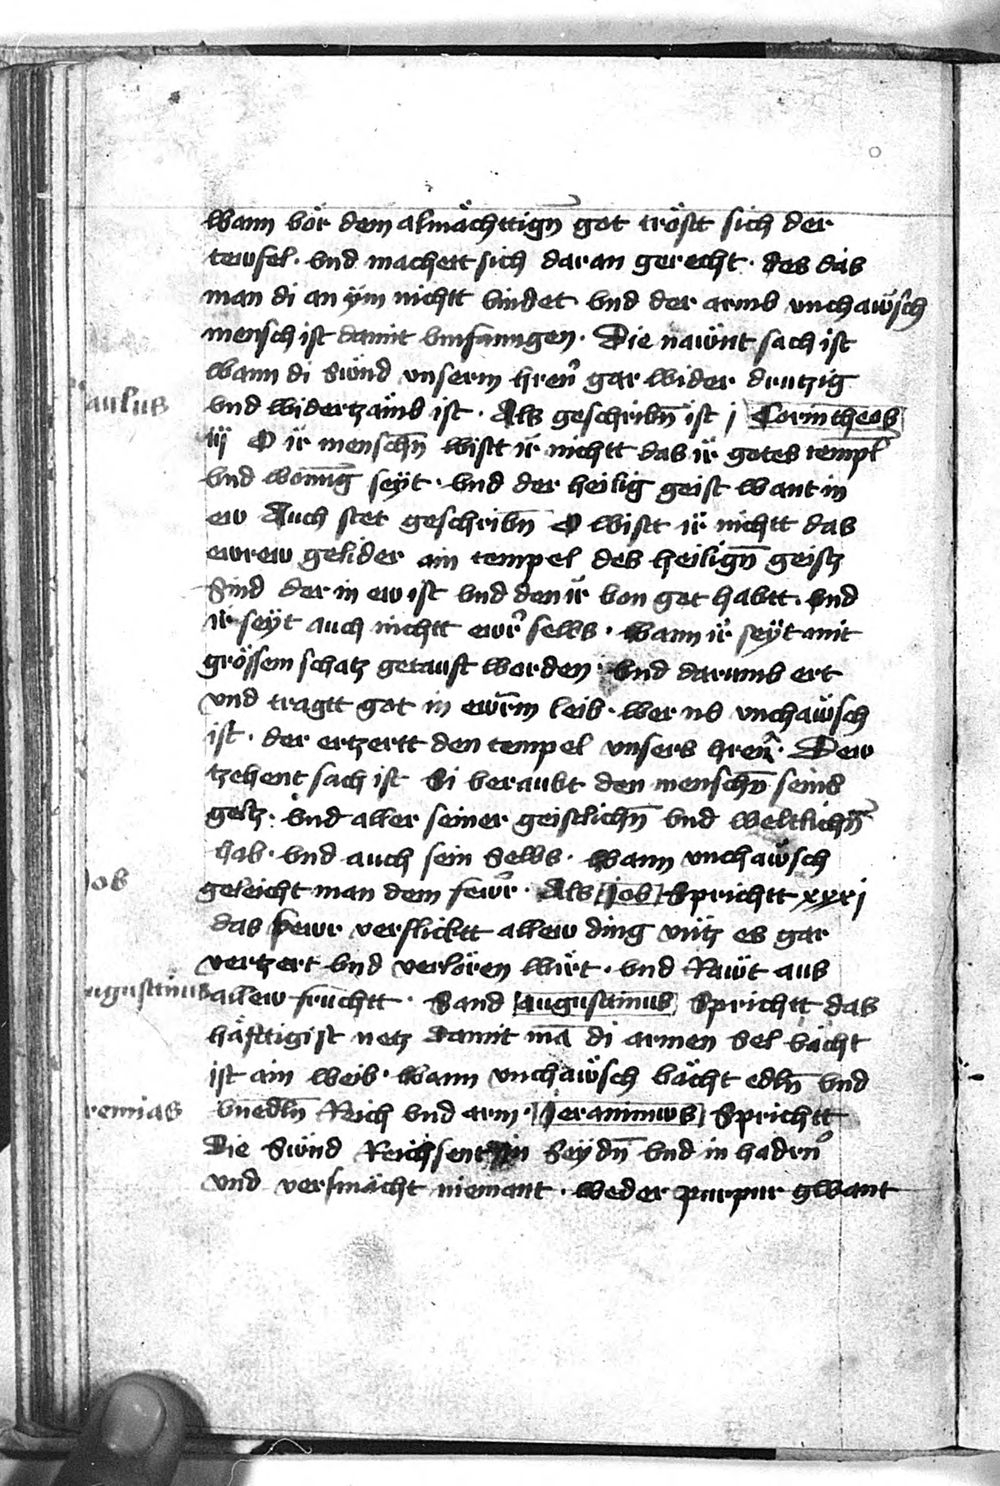 wann vör dem almächttign̄ got tröstt sich der
tewfel · vnd machett sich daran gerecht · des das
man di an ÿm nichtt vindet vnd der armb vnchawsch
mensch ist damit vmfanngen · Die nawnt sach ist
wann di Sẅnd vnserm hren̄ gar wider drutzig
aulus
vnd widertzämb ist · Als geschribn̄ ist j Corintheos
iij O ir menschn̄ wistt ir nichtt das ir̈ gotes templ
vnd wonu̅g seÿt · vnd der heilig geist want in
ew Auch stet geschribn̄ O wistt ir̈ nichtt das
ewrew gelider ain tempel des heilign̄ geistz
Sind der in ew ist vnd den ir̈ von got habtt · vnd
ir seÿt auch nichtt ewr̄ selbs · wann ir̈ seÿt mit
grössem schatz getauft worden · vnd darumb ert
vnd tragtt got in ewrm̄ leib · wer nb vnchawsch
ist · der ertzertt den tempel vnsers hren̄ · Dew
tzehent sach ist Si beraubt den menschn̄ seins
gestz · vnd aller seiner geistlichn̄ vnd weltlichn̄
hab · vnd auch sein Selbs · wann vnchawsch
Job
geleicht man dem fewr̄ · Als Job Sprichtt xxxj
das fewr verslicktt allew ding vntz es gar
vertzert vnd verlören wirt · vnd Rawt aus
augustinus
allew fruchtt · Sand augustinus Sprichtt das
häfttigist netz damit ma̅ di armen Sel vächt
ist ain weib · wann vnchawsch vächt edln̄ vnd
remias
vnedln̄ Reich vnd arm · Jeranimus Sprichtt
Die Sẅnd Reichsent in Seydn̄ vnd in hadrn̄
vnd versmächt niemant · weder purpur gwant